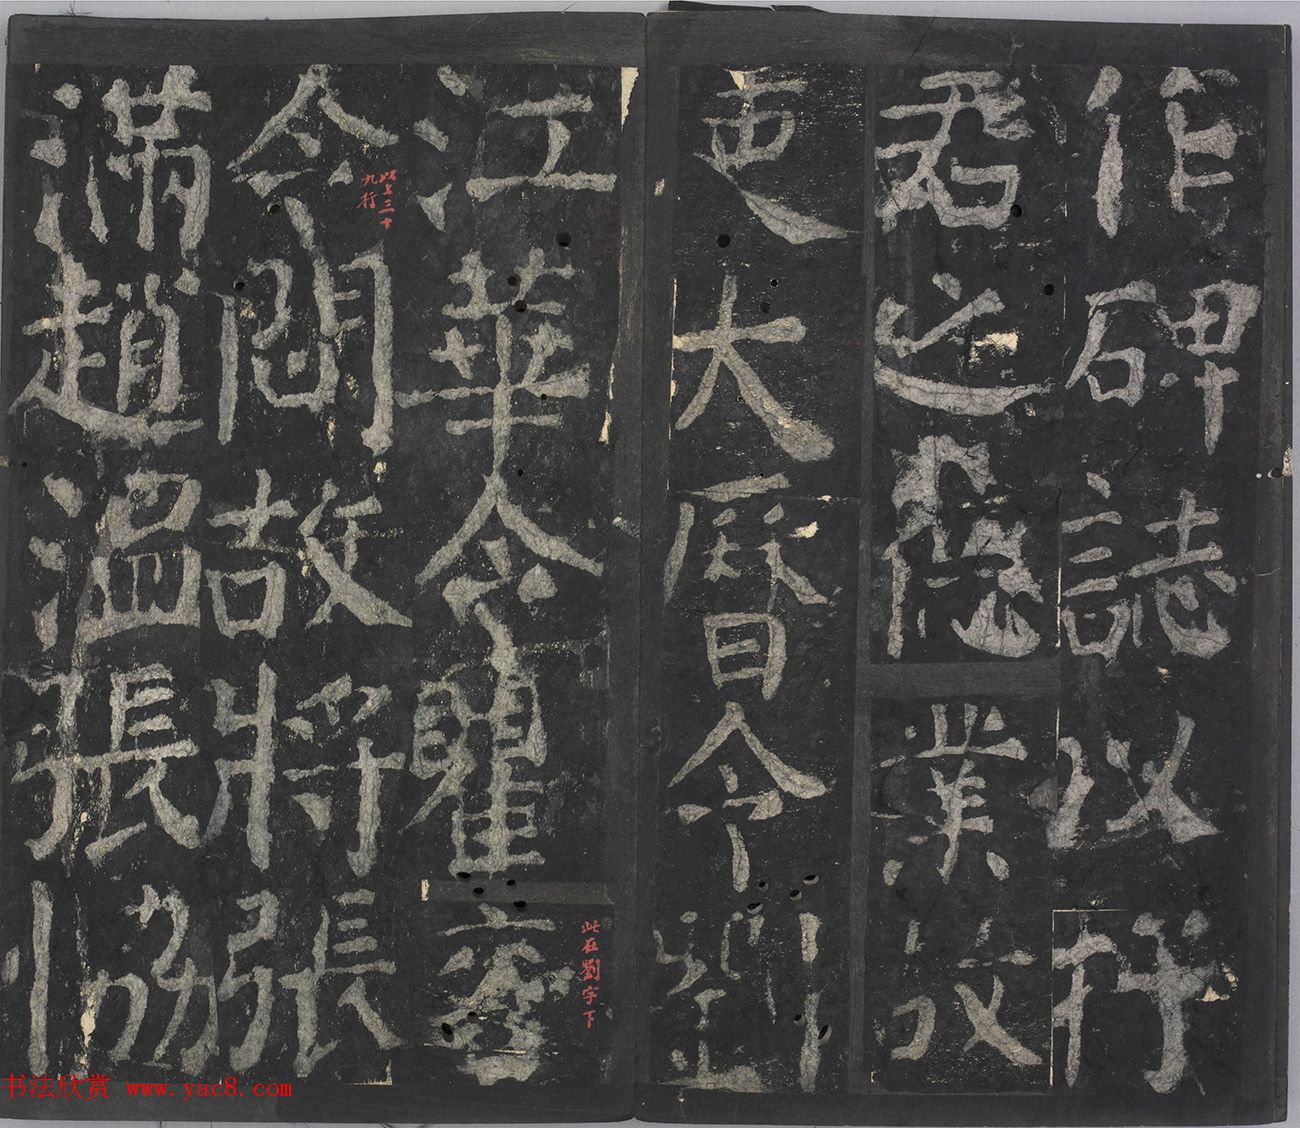 作碑誌以抒
君之業故
吏大曆令劉
江華令瞿衮
此在劉字下
令問故將張
九行
滿趙溫張協
书法欣赏 www.yac8.com